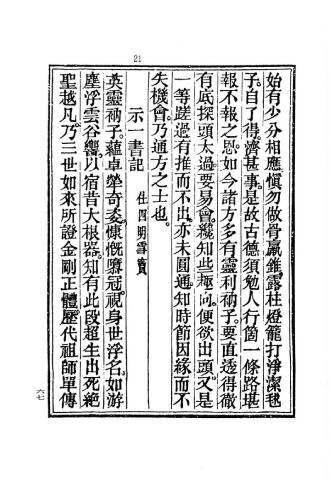 21
始有少分相應愼勿做骨羸錐露柱燈籠打淨潔毬
子自了得濟甚事是故古德須勉人行箇一條路堪
報不報之恩如今諸方多有靈利衲子要直透得徹
有底探頭太過要易會纔知些趣向便欲出頭又是
一等蹉過有推而不出亦未圓通知時節因緣而不
失機會乃通方之士也
示一書記 住四明雪竇
英靈衲子蘊卓犖奇姿慷慨隳冠視身世浮名如游
塵浮雲谷響以宿昔大根器知有此段超生出死絶
聖越凡乃三世如來所證金剛正體歷代祖師單傳
六七